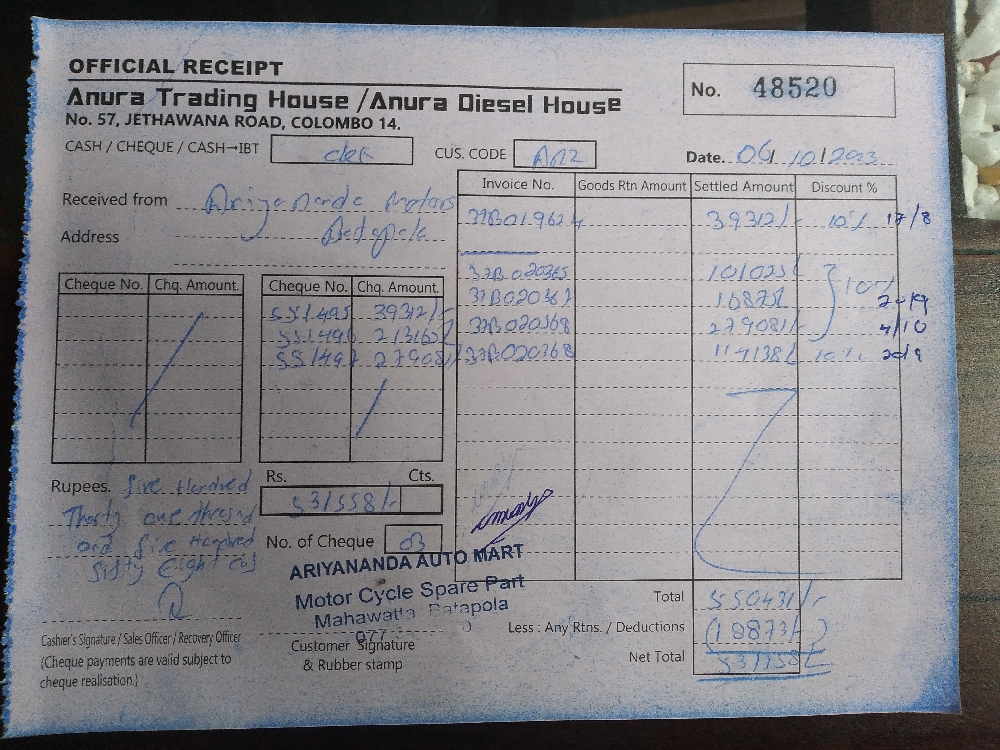 OFFICIAL RECEIPT
No. 48520
Anura Trading House / Anura Diesel House
No. 57, JETHAWANA ROAD, COLOMBO 14.
CASH / CHEQUE / CASH→IBT
CUS. CODE
Date. 06/10/2023
Received from Ariyananda Motors
Address
Invoice No. Goods Rtn Amount Settled Amount Discount %
10% 17/8
Cheque No. Chq. Amount. Cheque No. Chq. Amount.
32B020365 101025/- 10%
551495 39312/-
551496 213165/- 32B020368 279081/- 4/10
551497 279081/- 32B020368 10%
Rupees. five Hundred
Thirty one
and five Hundred
fifty eight
Rs. Cts.
531558/-
No. of Cheque 03
ARIYANANDA AUTO MART
Motor Cycle Spare Part
Mahawatta Batapola
077
Total 550431/-
Less : Any Rtns. / Deductions (18873/-)
Net Total 531558/-
Cashier's Signature / Sales Officer / Recovery Officer
(Cheque payments are valid subject to
cheque realisation.)
Customer Signature
& Rubber stamp